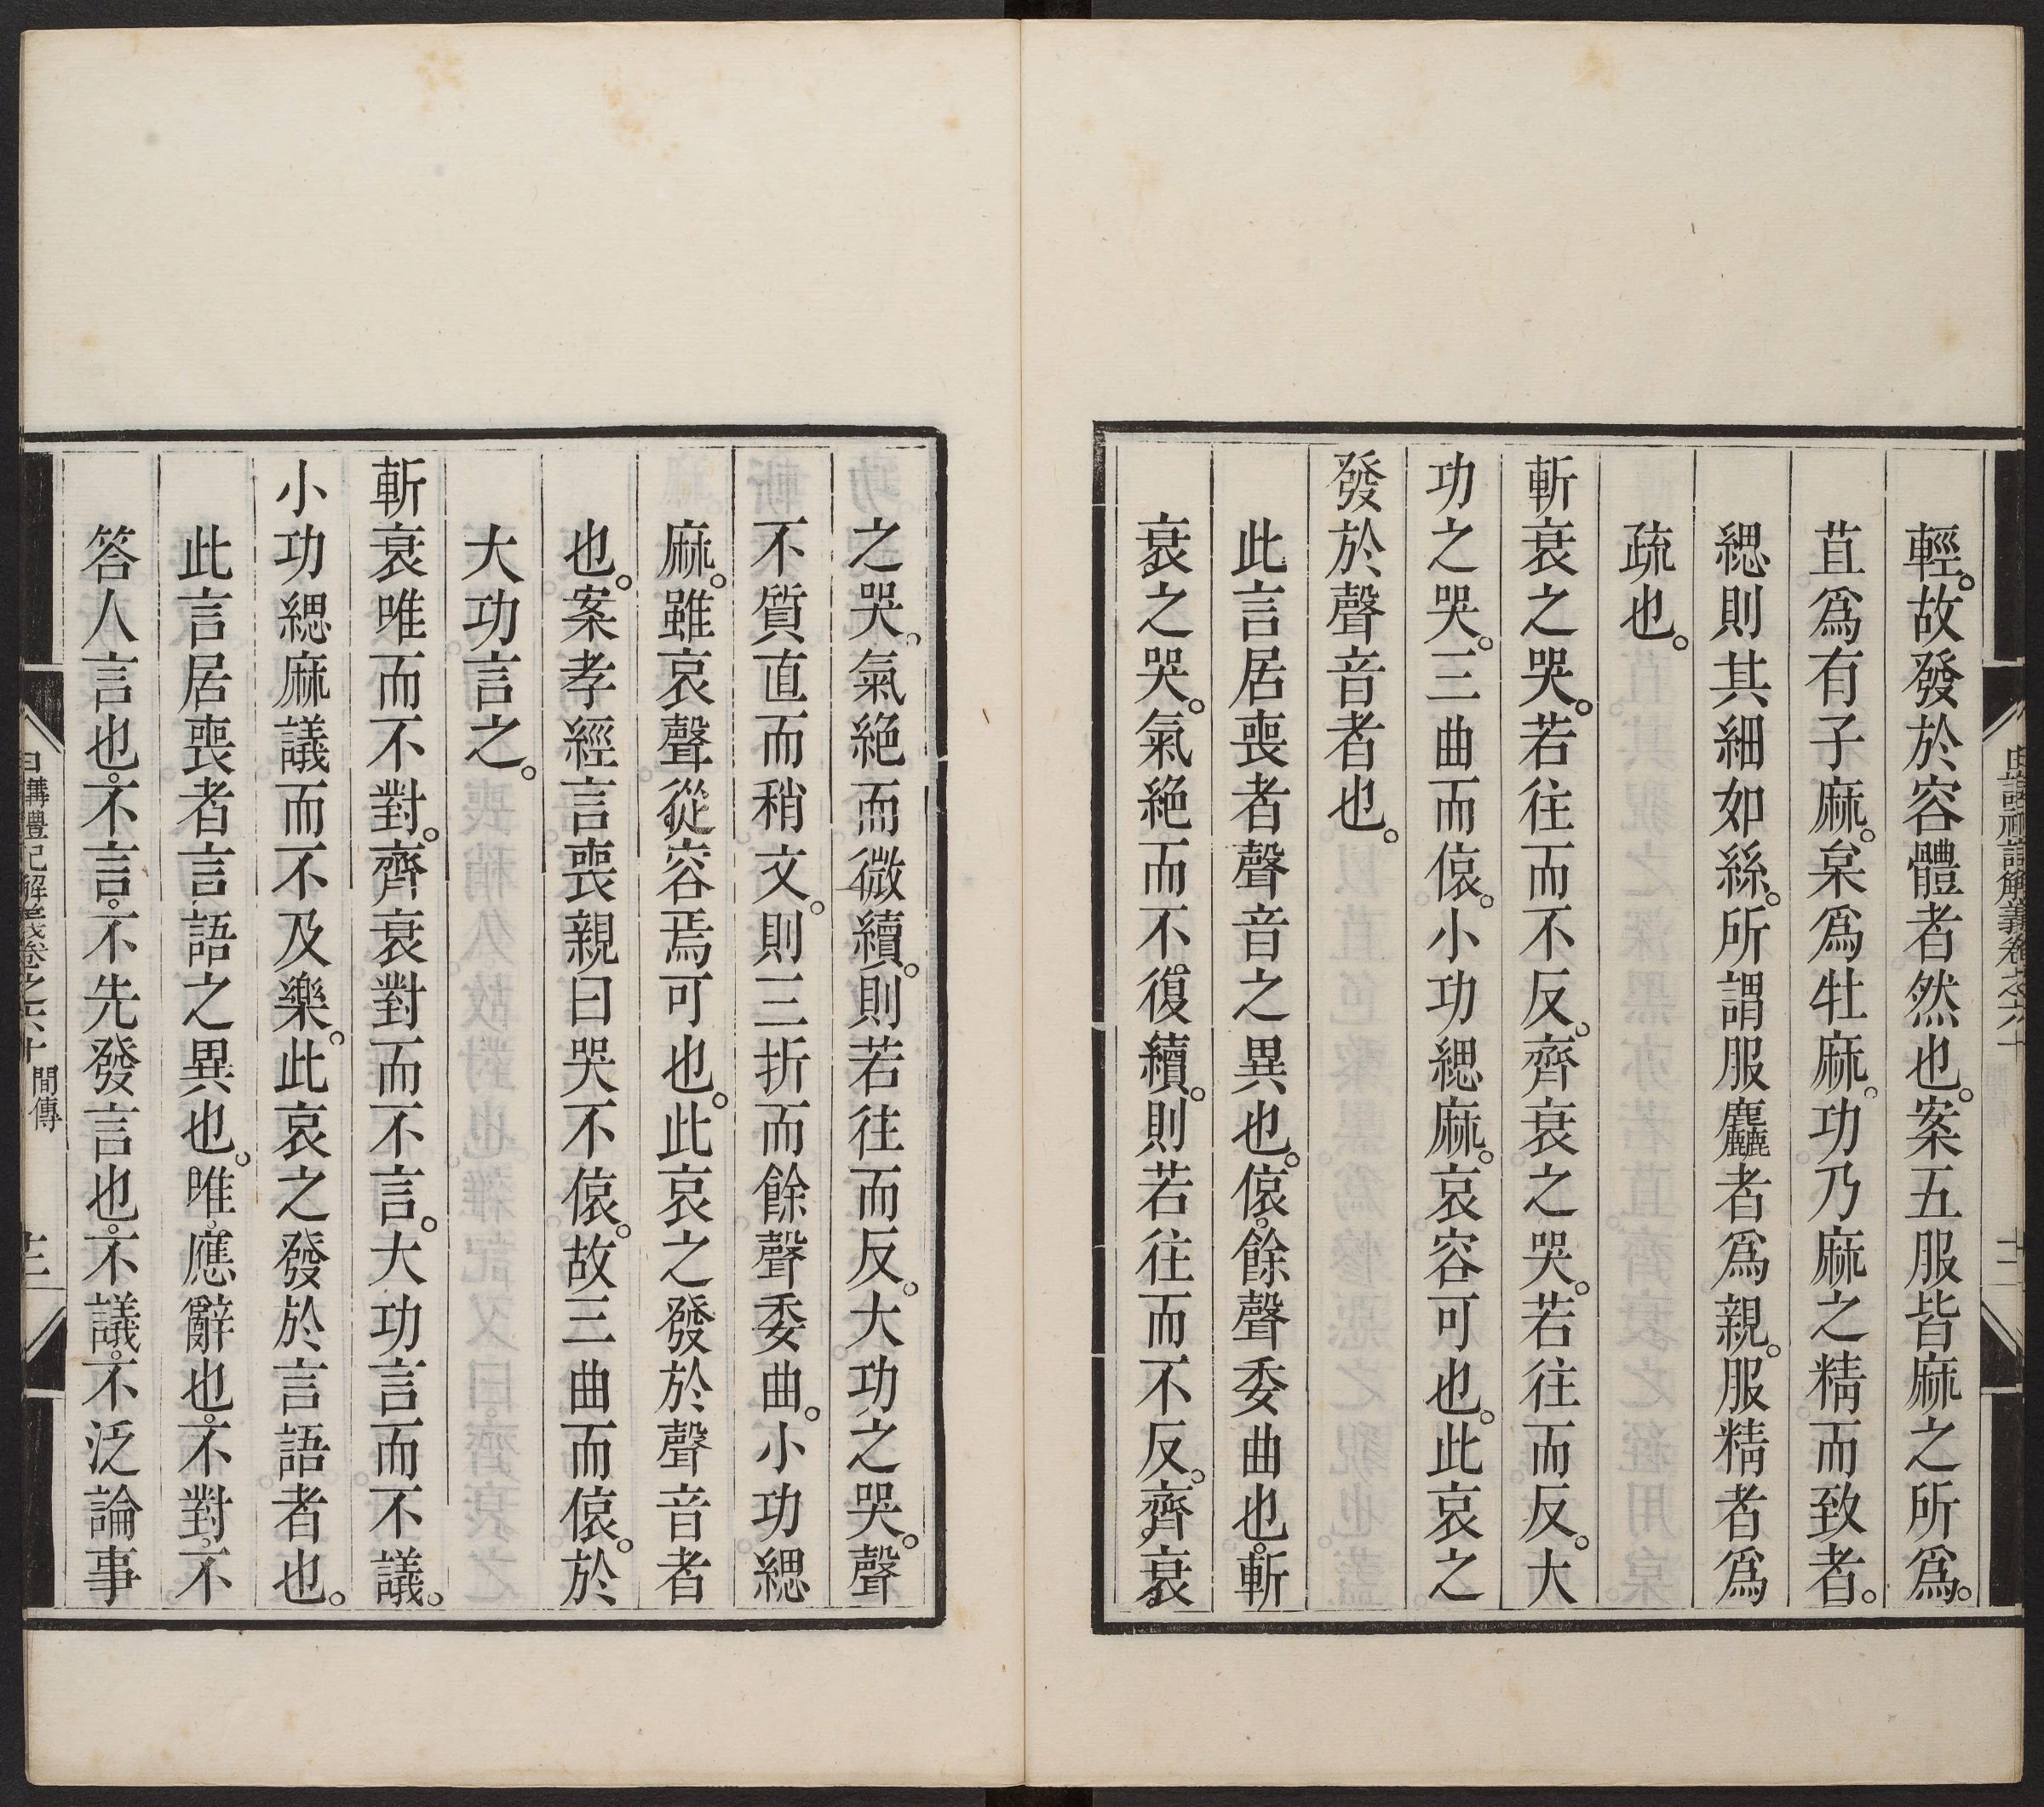 輕。故發於容體者然也。案五服皆麻之所爲。
苴爲有子麻。枲爲牡麻。功乃麻之精而致者。
緦則其細如絲。所謂服麤者爲親。服精者爲
疏也。
斬衰之哭。若往而不反。齊衰之哭。若往而反。大
功之哭。三曲而偯。小功緦麻。哀容可也。此哀之
發於聲音者也。
此言居喪者聲音之異也。偯。餘聲委曲也。斬
衰之哭。氣絶而不復續。則若往而不反。齊衰
之哭。氣絶而微續。則若往而反。大功之哭。聲
不質直而稍文。則三折而餘聲委曲。小功緦
麻。雖哀聲從容焉可也。此哀之發於聲音者
也。案孝經言喪親曰哭不偯。故三曲而偯。於
大功言之。
斬衰唯而不對。齊衰對而不言。大功言而不議。
小功緦麻議而不及樂。此哀之發於言語者也。
此言居喪者言語之異也。唯。應辭也。不對。不
答人言也。不言。不先發言也。不議。不泛論事
日講禮記解義卷之六十 間傳